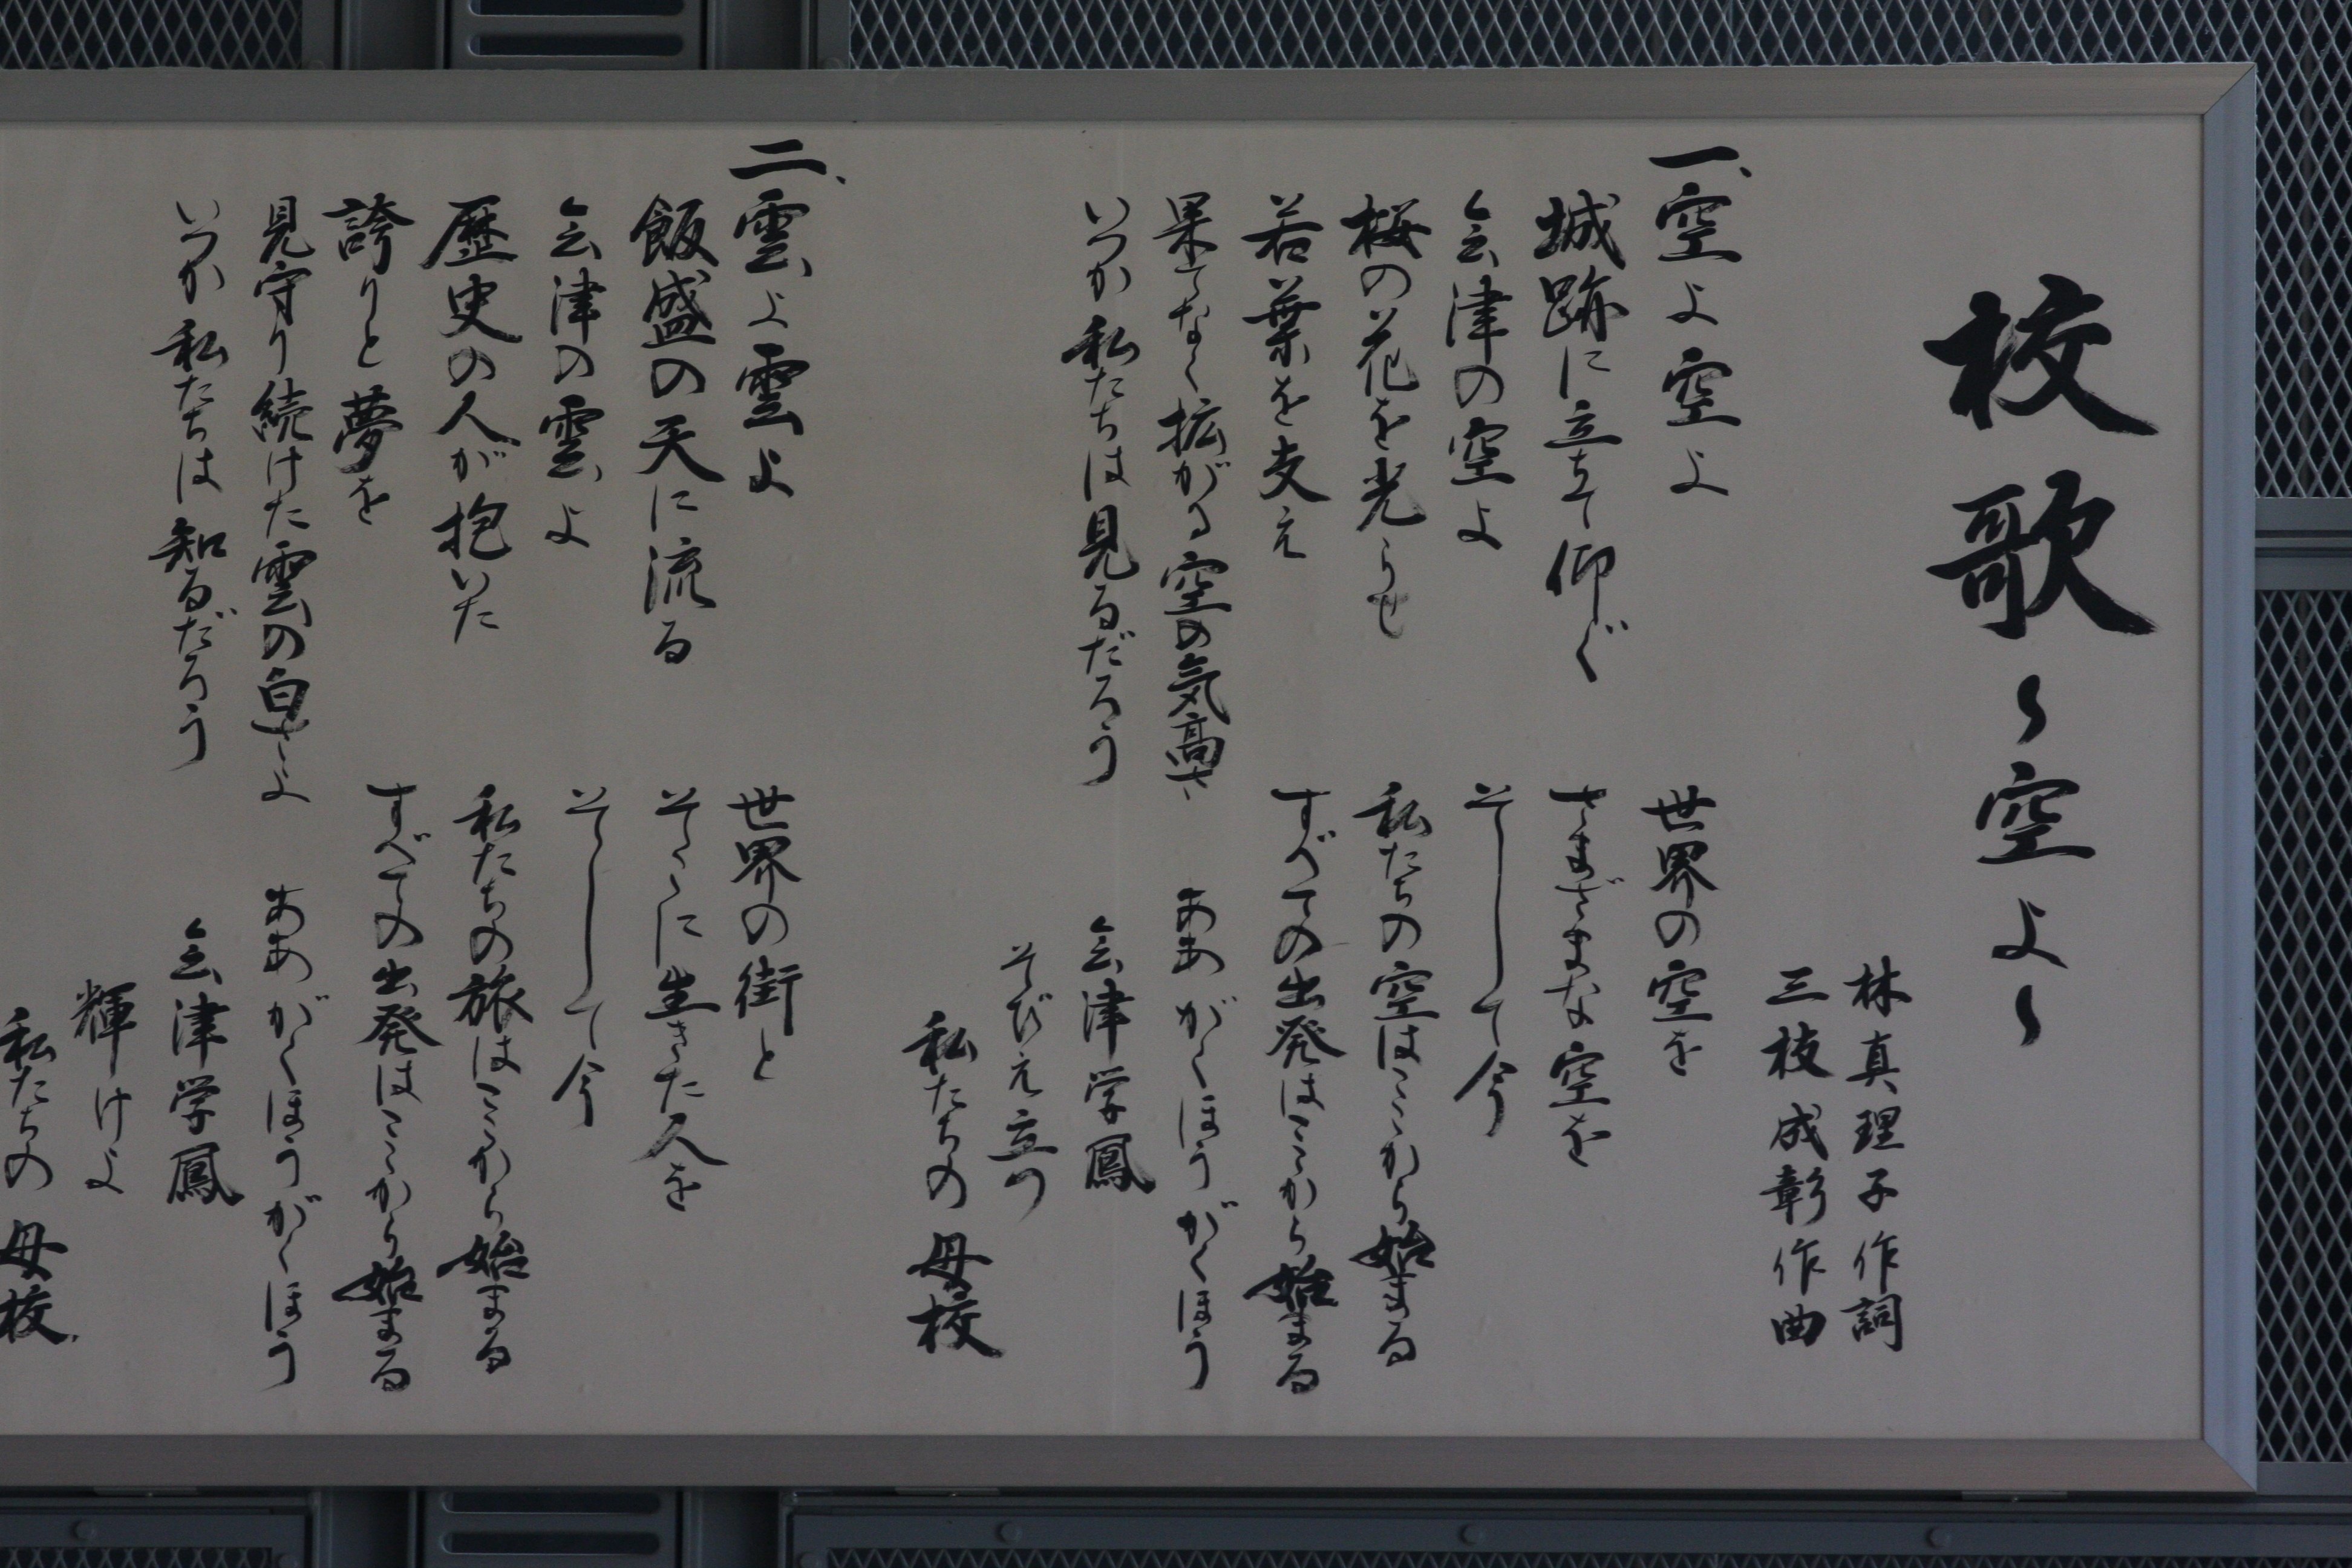 校歌～空よ～
林真理子 作詞
三枝成彰 作曲
一、空よ空よ
城跡に立ちて仰ぐ
会津の空よ
桜の花を光らせ
若葉を支え
果てなく拡がる空の気高さ
いつか私たちは見るだろう
世界の空を
さまざまな空を
そして今
私たちの空はここから始まる
すべての出発はここから始まる
ああ がくほう がくほう
会津学鳳
そびえ立つ
私たちの母校
二、雲よ雲よ
飯盛の天に流る
会津の雲よ
歴史の人が抱いた
誇りと夢を
見守り続けた雲の白さよ
いつか私たちは知るだろう
世界の街と
そこに生きた人を
そして今
私たちの旅はここから始まる
すべての出発はここから始まる
ああ がくほう がくほう
会津学鳳
輝けよ
私たちの母校